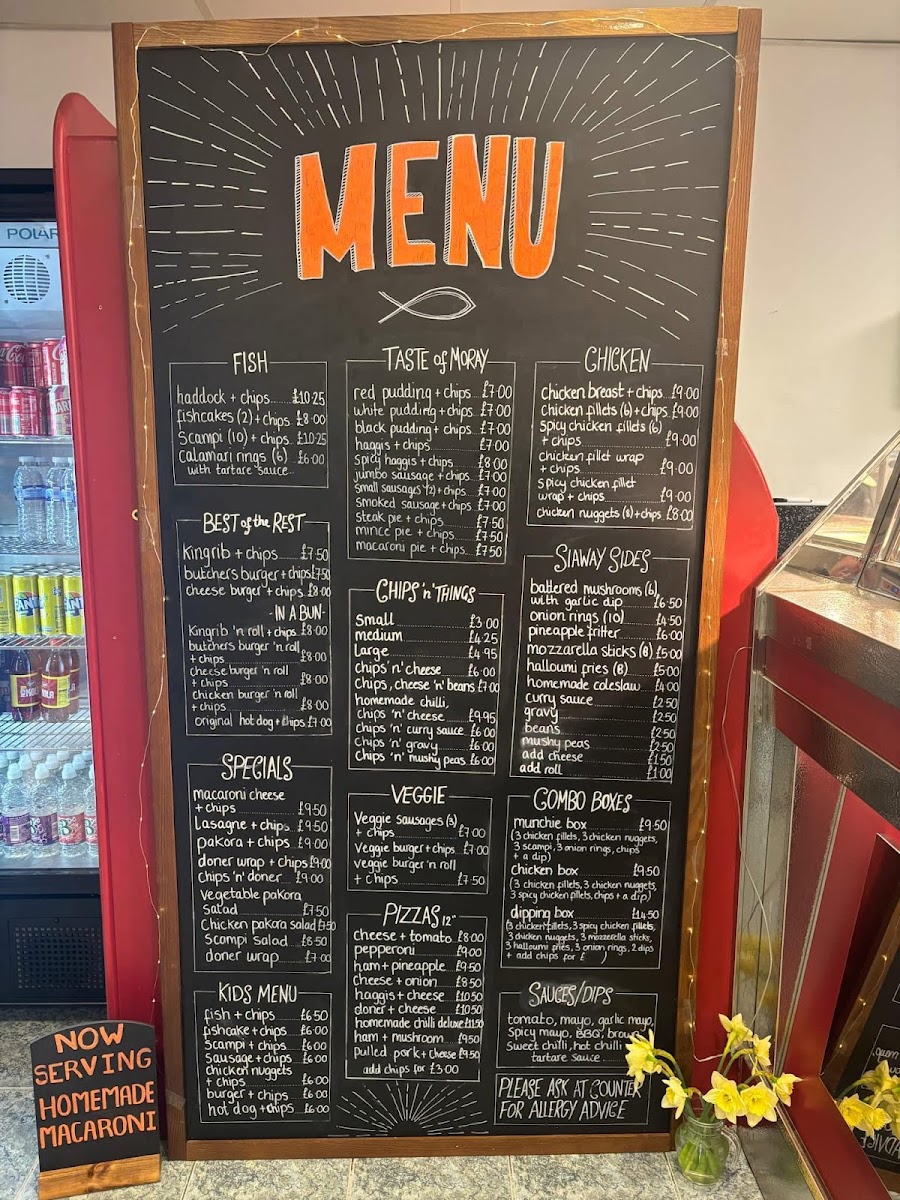 MENU
FISH
haddock + chips £10.25
fishcakes (2) + chips £8.00
Scampi (10) + chips £10.25
Calamari rings (6) £6.00
with tartare sauce
BEST of the REST
Kingrib + chips £7.50
butchers burger + chips £7.50
cheese burger + chips £8.00
- IN A BUN -
Kingrib 'n roll + chips £8.00
butchers burger 'n roll
+ chips £8.00
cheese burger 'n roll
+ chips £8.00
chicken burger 'n roll
+ chips £8.00
original hot dog + chips £7.00
SPECIALS
macaroni cheese
+ chips £9.50
Lasagne + chips £9.50
pakora + chips £9.00
doner wrap + chips £9.00
chips 'n' doner £9.00
vegetable pakora
Salad £7.50
Chicken pakora salad £7.50
Scampi Salad £8.50
doner wrap £7.00
KIDS MENU
fish + chips £6.50
fishcake + chips £6.00
Scampi + chips £6.00
Sausage + chips £6.00
chicken nuggets
+ chips £6.00
burger + chips £6.00
hot dog + chips £6.00
TASTE of MORAY
red pudding + chips £7.00
white pudding + chips £7.00
black pudding + chips £7.00
haggis + chips £7.00
spicy haggis + chips £8.00
jumbo sausage + chips £7.00
small sausages (2) + chips £7.00
smoked sausage + chips £7.00
steak pie + chips £7.50
mince pie + chips £7.50
macaroni pie + chips £7.50
CHIPS 'n' THINGS
Small £3.00
medium £4.25
Large £4.95
chips 'n' cheese £6.00
chips, cheese 'n' beans £7.00
homemade chilli,
chips 'n' cheese £9.95
chips 'n' curry sauce £6.00
Chips 'n' gravy £6.00
Chips 'n' mushy peas £6.00
VEGGIE
Veggie sausages (3)
+ chips £7.00
Veggie burger + chips £7.00
veggie burger 'n roll
+ chips £7.50
PIZZAS 12"
cheese + tomato £8.00
pepperoni £9.00
ham + pineapple £9.50
cheese + onion £8.50
haggis + cheese £10.50
doner + cheese £10.50
homemade chilli deluxe £11.50
ham + mushroom £9.50
pulled pork + cheese £9.50
add chips for £3.00
CHICKEN
chicken breast + chips £9.00
chicken fillets (6) + chips £9.00
spicy chicken fillets (6)
+ chips £9.00
chicken fillet wrap
+ chips £9.00
spicy chicken fillet
wrap + chips £9.00
chicken nuggets (8) + chips £8.00
SIAWAY SIDES
battered mushrooms (6)
with garlic dip £6.50
onion rings (10) £4.50
pineapple fritter £6.00
mozzarella sticks (8) £5.00
halloumi fries (8) £5.00
homemade coleslaw £4.00
curry sauce £2.50
gravy £2.50
beans £2.50
mushy peas £2.50
add cheese £1.50
add roll £1.00
COMBO BOXES
munchie box £9.50
(3 chicken fillets, 3 chicken nuggets,
3 scampi, 3 onion rings, chips
+ a dip)
chicken box £9.50
(3 chicken fillets, 3 chicken nuggets,
3 spicy chicken fillets, chips + a dip)
dipping box £14.50
(3 chicken fillets, 3 spicy chicken fillets,
3 chicken nuggets, 3 mozzerella sticks,
3 halloumi fries, 3 onion rings, 2 dips
+ add chips for £
SAUCES/DIPS
tomato, mayo, garlic mayo,
Spicy mayo, BBQ, brown
Sweet chilli, hot chilli
tartare sauce
PLEASE ASK AT COUNTER
FOR ALLERGY ADVICE
NOW
SERVING
HOMEMADE
MACARONI
POLAR
Coca-Cola